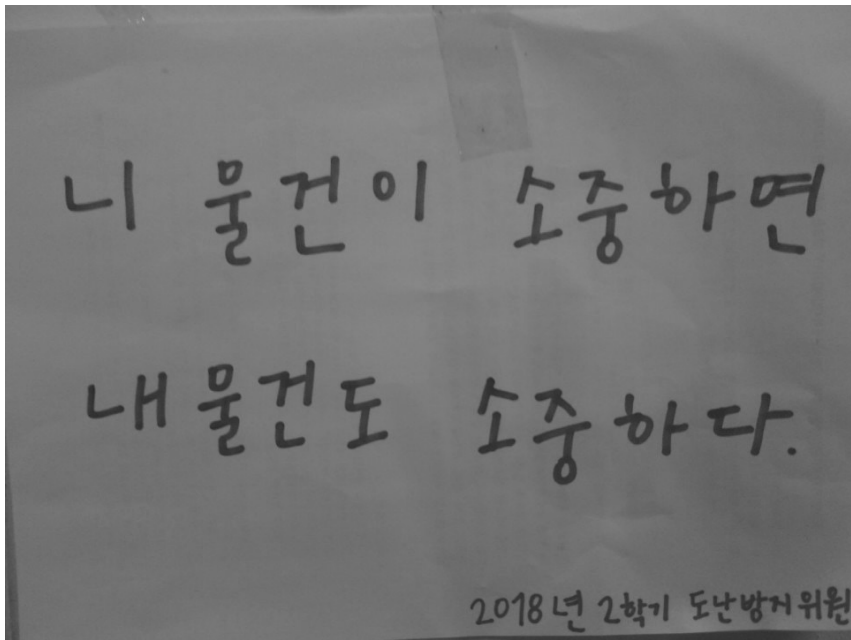 니 물건이 소중하면
내 물건도 소중하다.
2018년 2학기 도난방지위원